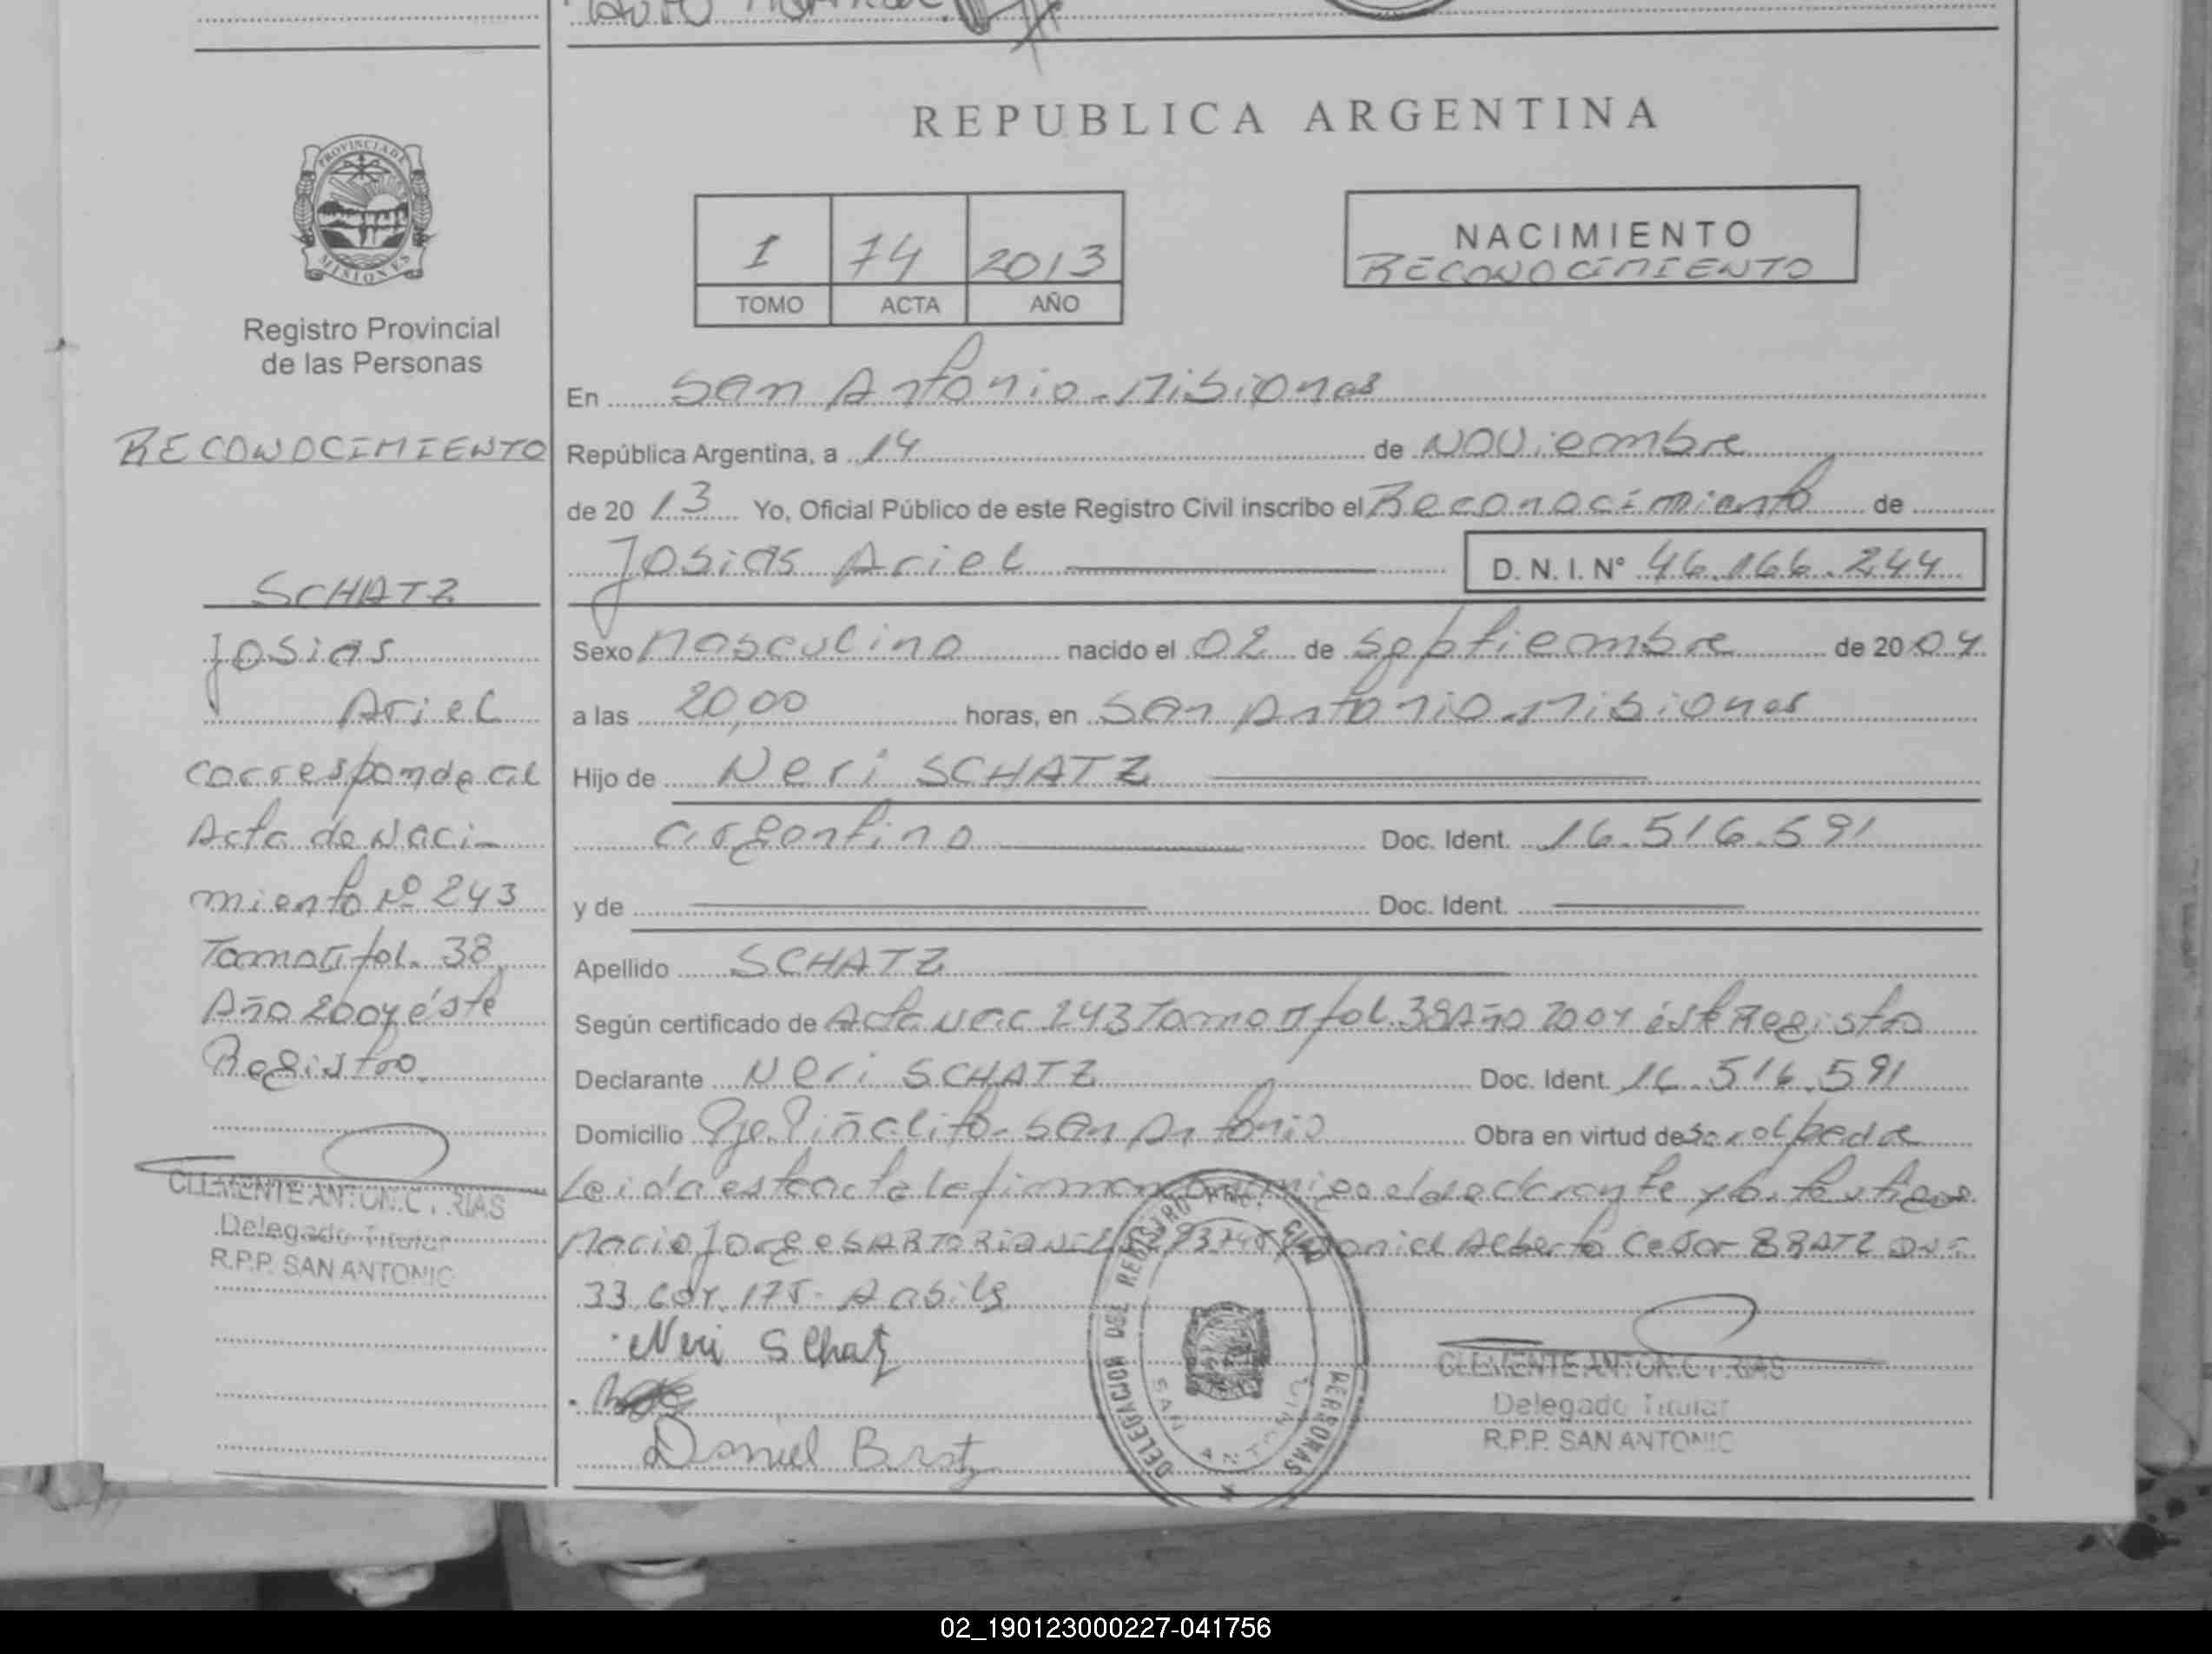 REPUBLICA ARGENTINA
PROVINCIA DE
MISIONES
Registro Provincial
de las Personas
I 74 2013
TOMO ACTA AÑO
NACIMIENTO
RECONOCIMIENTO
RECONOCIMIENTO
SCHATZ
Josias
Ariel
corresponde al
Acta de Naci-
miento Nº 243
Tomo II fol. 38
Año 2004 éste
Registro
CLEMENTE ANTON
Delegado Titular
R.P.P. SAN ANTONIO
En San Antonio-Misiones
República Argentina, a 14 de Noviembre
de 2013 Yo, Oficial Público de este Registro Civil inscribo el Reconocimiento de
Josias Ariel D. N. I. Nº 46.166.244
Sexo Masculino nacido el 02 de Septiembre de 2004
a las 20,00 horas, en San Antonio-Misiones
Hijo de Neri SCHATZ
argentino Doc. Ident. 16.516.591
y de Doc. Ident.
Apellido SCHATZ
Según certificado de Acta Nac 243 Tomo II fol. 38 Año 2004 éste Registro
Declarante Neri SCHATZ Doc. Ident. 16.516.591
Domicilio Pje. Piñalito-San Antonio Obra en virtud de
Leida esta acta la firman conmigo el declarante y los testigos
Mario Jorge SARTORI Daniel Alberto Cesar BRATZ DNI
33. 175-
Neri SChatz
Daniel Bratz
DELEGACION DEL REGISTRO PERSONAS
SAN ANTONIO
CLEMENTE ANTON
Delegado Titular
R.P.P. SAN ANTONIO
02_190123000227-041756